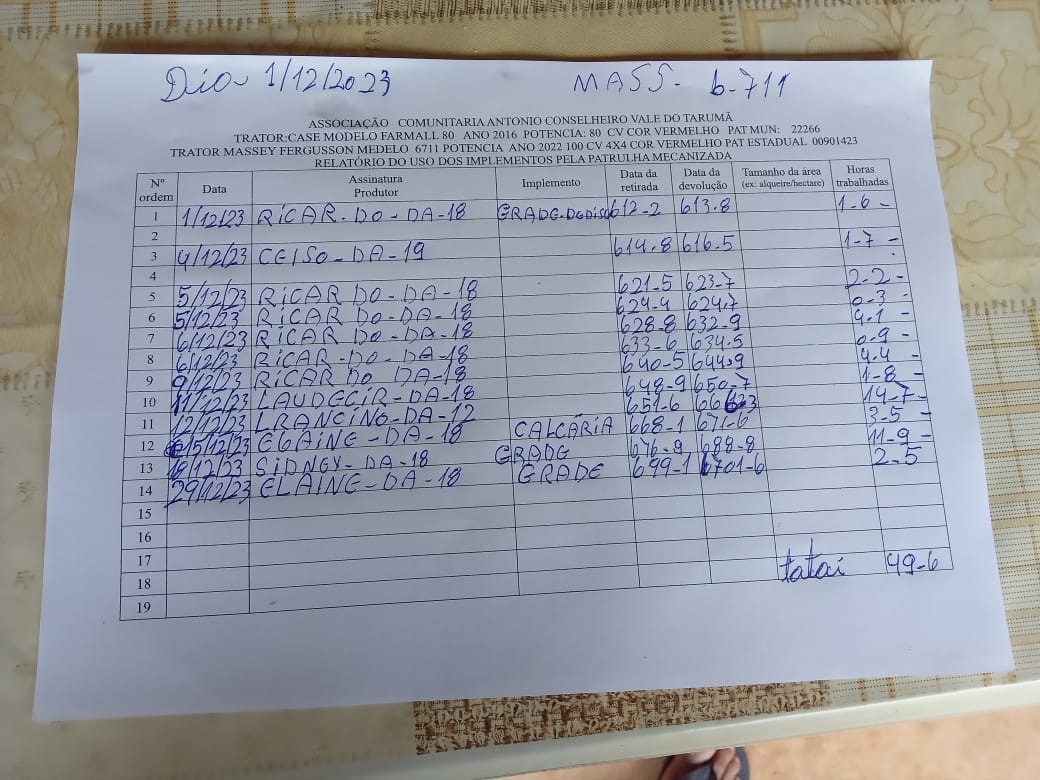 Dia 1/12/2023 MASS- 6-711
ASSOCIAÇÃO COMUNITARIA ANTONIO CONSELHEIRO VALE DO TARUMÃ
TRATOR:CASE MODELO FARMALL 80 ANO 2016 POTENCIA: 80 CV COR VERMELHO PAT MUN: 22266
TRATOR MASSEY FERGUSSON MEDELO 6711 POTENCIA ANO 2022 100 CV 4X4 COR VERMELHO PAT ESTADUAL 00901423
RELATÓRIO DO USO DOS IMPLEMENTOS PELA PATRULHA MECANIZADA
Nº ordem Data Assinatura Produtor Implemento Data da retirada Data da devolução Tamanho da área (ex: alqueire/hectare) Horas trabalhadas
1 1/12/23 RICAR-DO-DA-18 GRADE-DeDisco 612-2 613.8 1-6-
2
3 4/12/23 CELSO-DA-19 614.8 616-5 1-7-
4
5 5/12/23 RICAR DO-DA-18 621-5 623-7 2-2-
6 5/12/23 RICAR DO-DA-18 624-4 624,7 0-3
7 6/12/23 RICAR DO-DA-18 628-8 632-9 4-1-
8 6/12/23 RICAR-DO-DA-18 633-6 634.5 0-9-
9 9/12/23 RICAR DO DA-18 640-5 644.9 4-4-
10 11/12/23 LAUDECIR-DA-18 648-9 650-7 1-8-
11 12/12/23 LRANCINO-DA-12 651-6 14-7-
12 15/12/23 ELAINE-DA-18 CALCÁRIA 668-1 671-6 3-5-
13 18/12/23 SIDNEY-DA-18 GRADE 676-9 688-8 11-9-
14 29/12/23 ELAINE-DA-18 GRADE 699-1 701-6 2-5
15
16
17
18 tatai 49-6
19